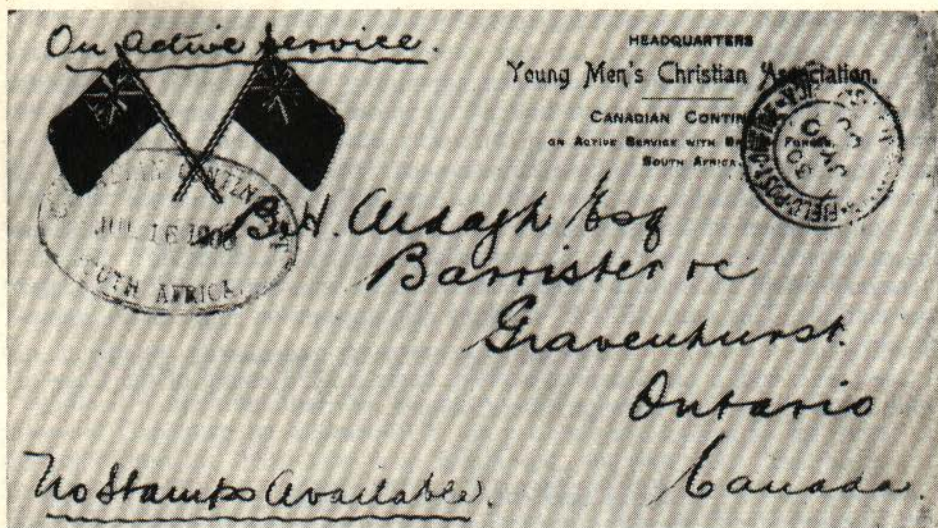 On active service.
HEADQUARTERS
Young Men's Christian Association.
CANADIAN CONTIN
ON ACTIVE SERVICE WITH BR FORCES
SOUTH AFRICA.
FIELD POST OFFICE
JY 30
00
CONTIN
JUL 16 1900
SOUTH AFRICA.
B.H. Ardagh Esq
Barrister &c
Gravenhurst.
Ontario
Canada.
No Stamps Available.